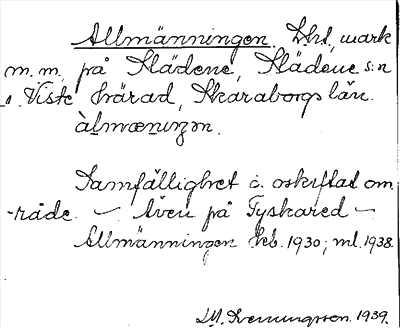 Allmänningen. Lht, mark
m.m. på Slädene, Slädene s:n
Viste härad, Skaraborgs län.
àlmæninzɷn.
Samfällighet o. oskiftat om
-råde. – Även på Fyskared –
Allmänningen keb. 1930; ml. 1938
1939.